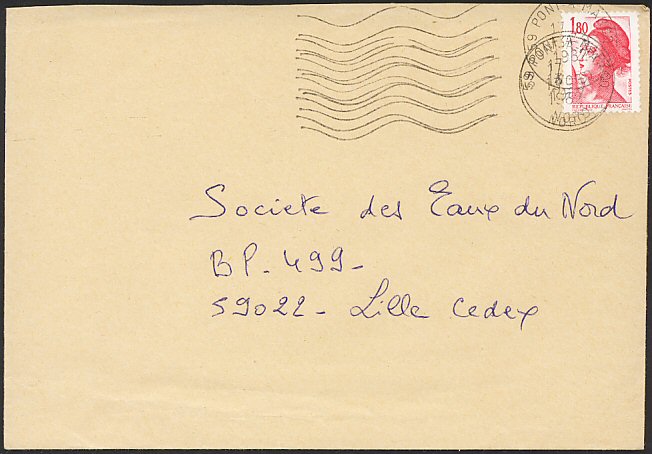 59 PONT-A-MARCQ
1.80
REPUBLIQUE FRANÇAISE
NORD
Societe des Eaux du Nord
BP. 499-
59022 - Lille Cedex